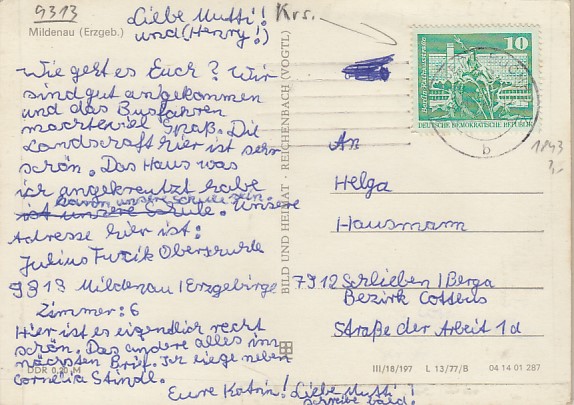 9313
Mildenau (Erzgeb.)
Liebe Mutti!
und (Henry!)
Krs.
Wie geht es Euch? Wir
sind gut angekommen
und das Busfahren
machte viel Spaß. Die
Landschaft hier ist sehr
schön. Das Haus was
ich angekreutzt habe
kann unsere Schule sein.
ist unsere Schule. Unsere
Adresse hier ist:
Julius Fucik Oberschule
9313 Mildenau / Erzgebirge
Zimmer: 6
Hier ist es eigendlich recht
schön. Das andere alles im
nächsten Brif. Ich liege neben
Cornelia Stindl.
Eure Katrin! Liebe Mutti!
schreibe bald!
DDR 0,20 M
BILD UND HEIMAT · REICHENBACH (VOGTL)
10
DEUTSCHE DEMOKRATISCHE REPUBLIK
b
1843
An
Helga
Hausmann
7912 Schlieben / Berga
Bezirk Cottbus
Straße der Arbeit 1d
III/18/197 L 13/77/B 04 14 01 287